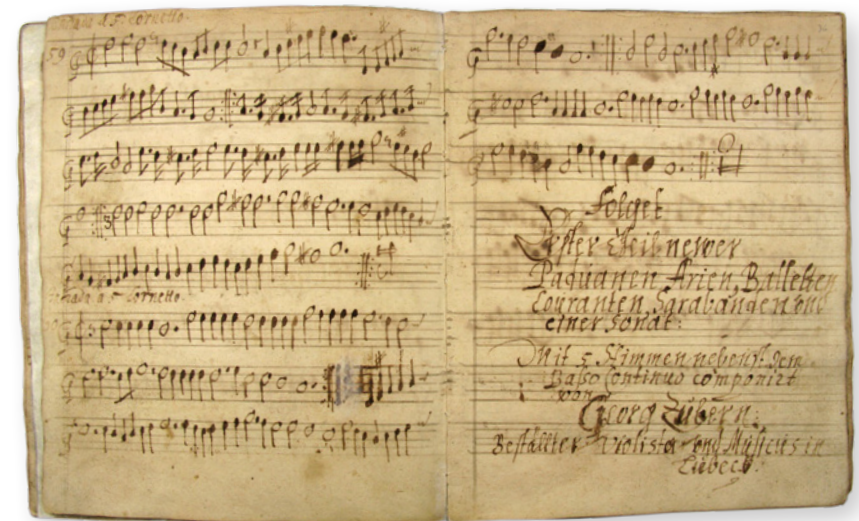 59
a 5. Cornetto.
a 5 Cornetto.
3
Folget
Erster Theil newer
Paduanen Arien, Balletten
Couranten, Sarabanden und
einer Sonat:
Mit 5 Stimmen nebenst dem
Basso Continuo componirt
von
Georg Zübern:
Bestallter Violista und Musicus in
Lübeck.